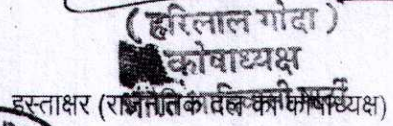 ( हरिलाल गोदा )
कोषाध्यक्ष
हस्ताक्षर (राजनैतिक दल का कोषाध्यक्ष)